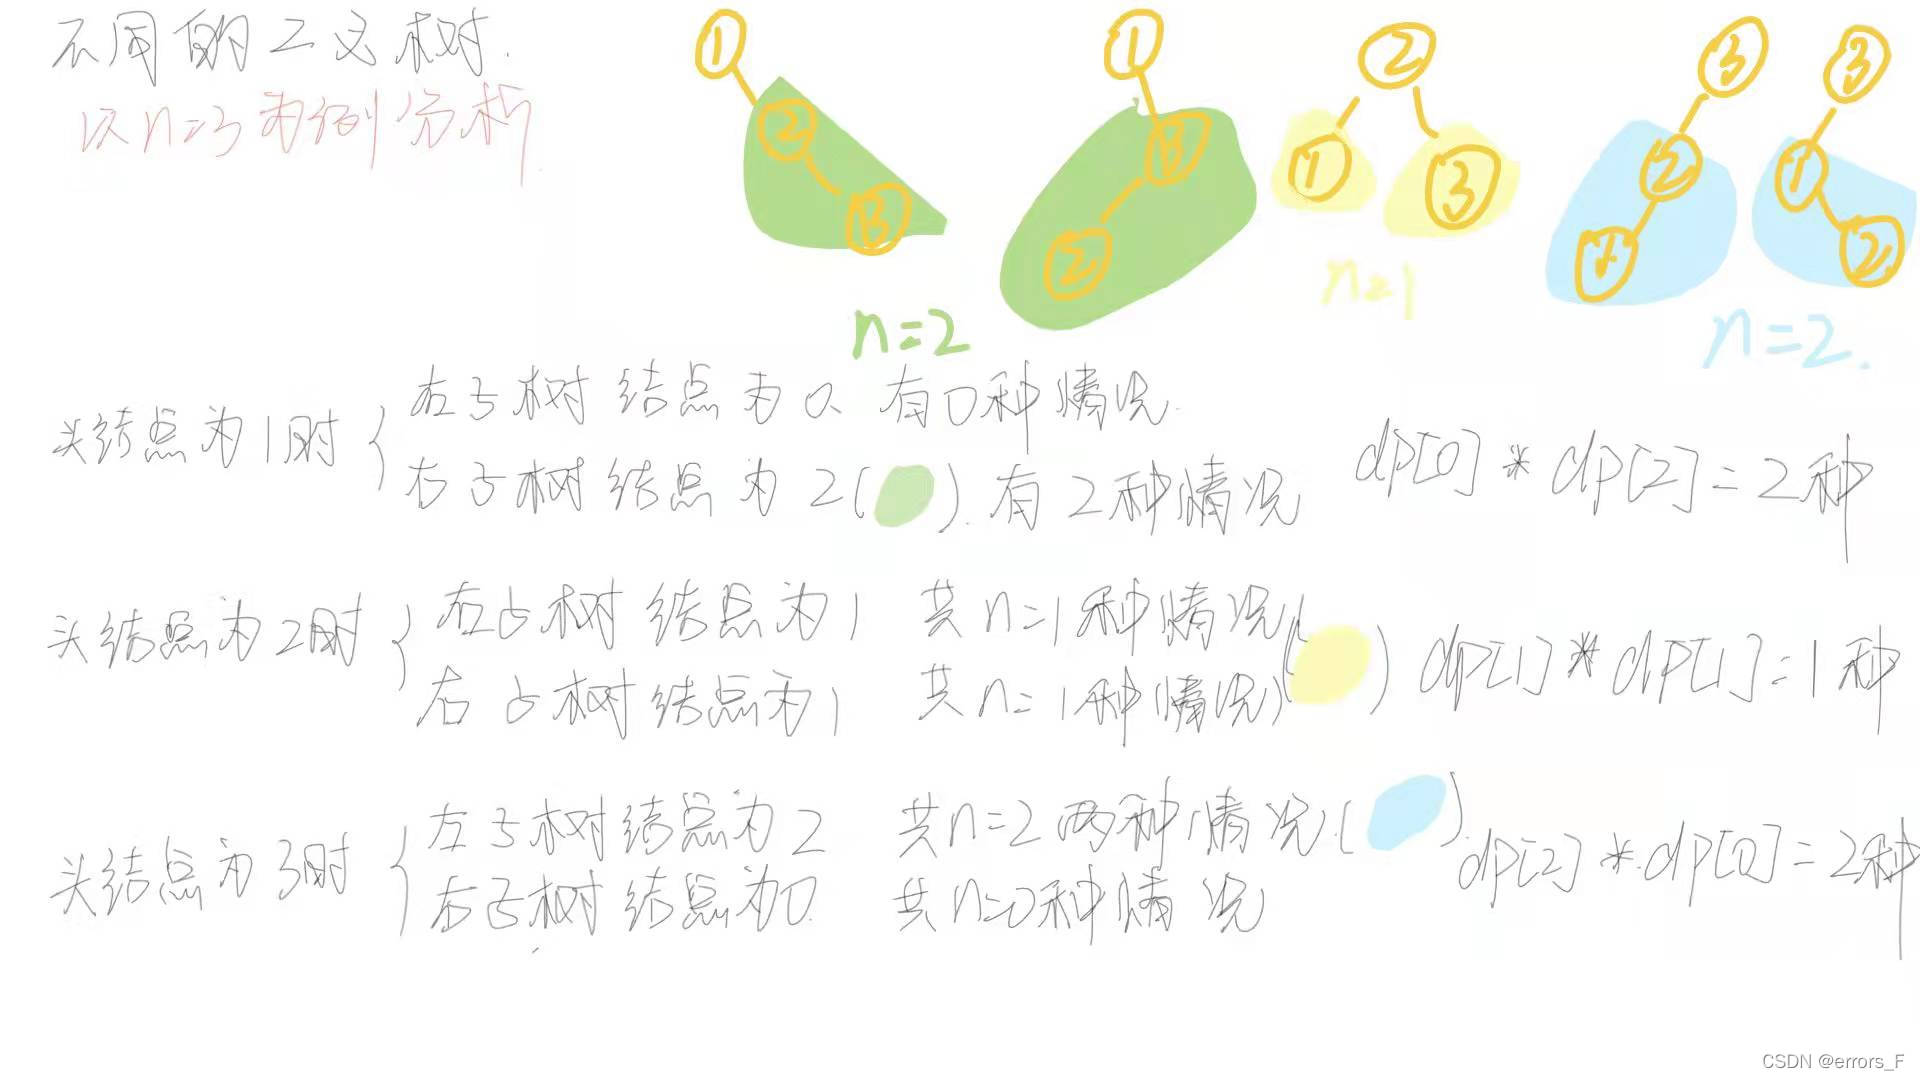 不同的二叉树.
以n=3为例分析.
1
2
3
1
3
2
2
1
3
3
2
1
3
1
2
n=2
n=1
n=2.
头结点为1时
左子树结点为0 有0种情况.
右子树结点为2( ). 有2种情况
dp[0] * dp[2] = 2种
头结点为2时
左子树结点为1 共n=1种情况
右子树结点为1 共n=1种情况
( )
dp[1] * dp[1] = 1种
头结点为3时
左子树结点为2 共n=2两种情况.( ).
右子树结点为0. 共n=0种情况
dp[2] * dp[0] = 2种
CSDN @errors_F